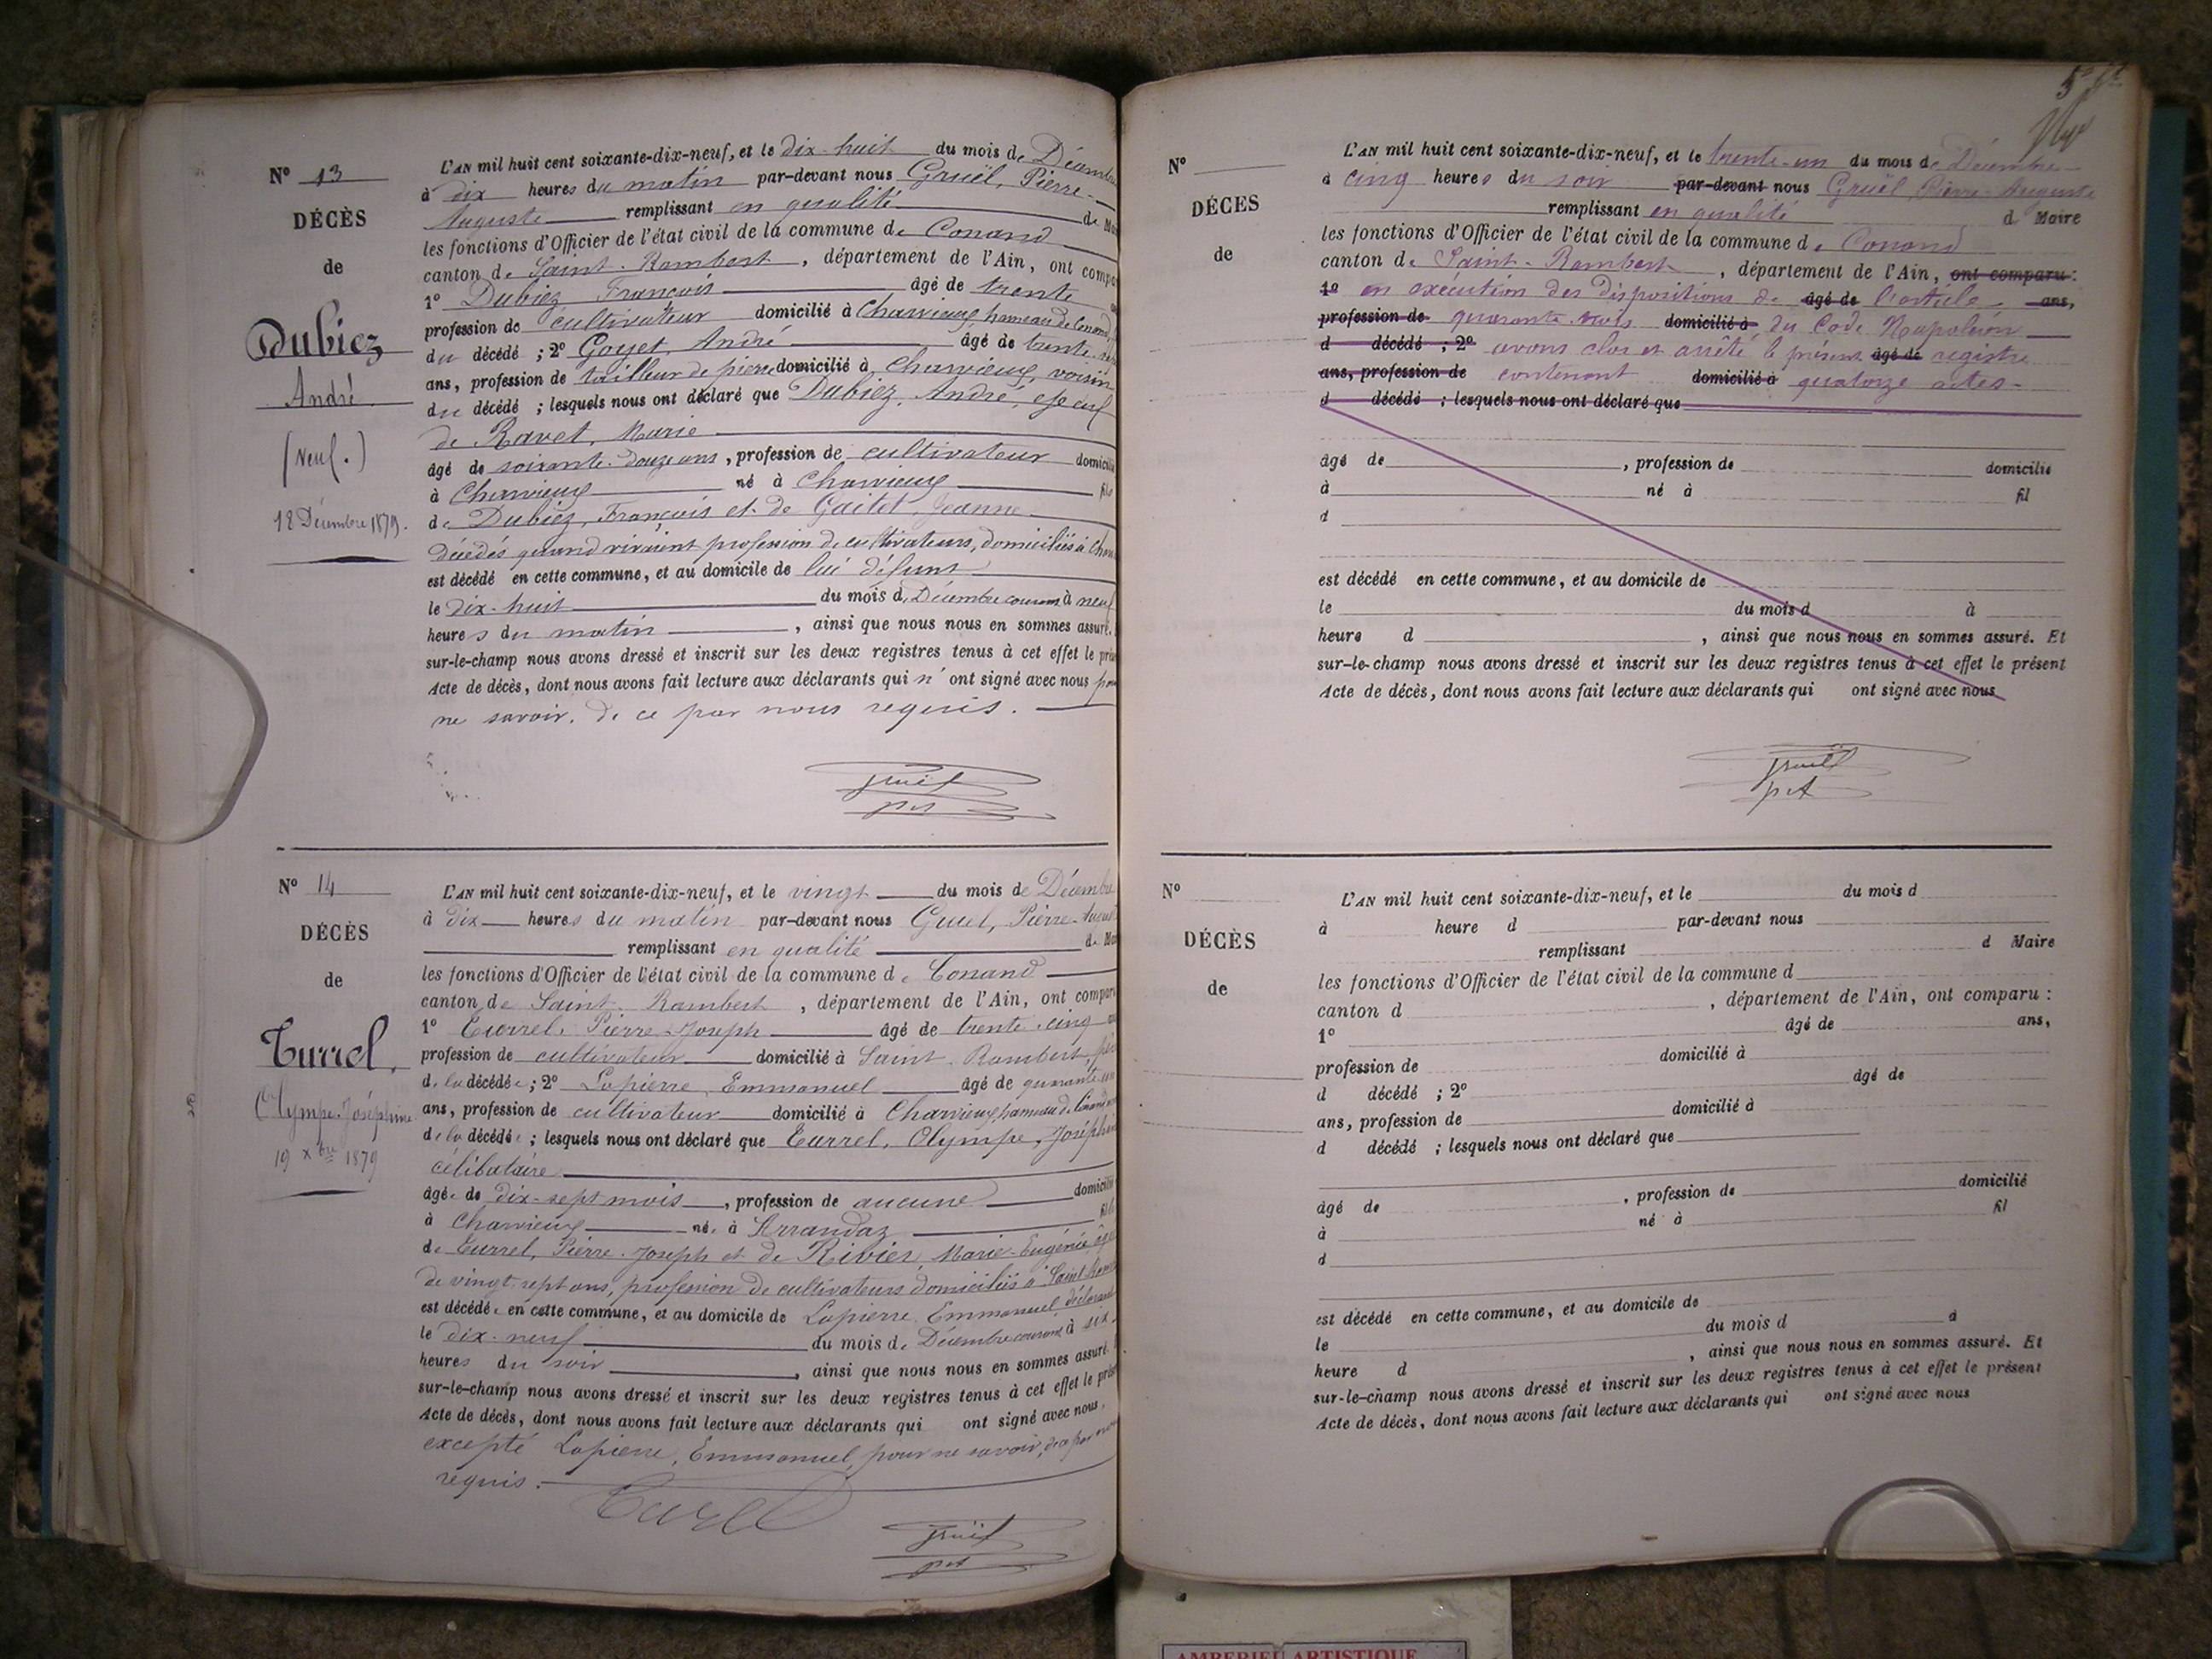 N° 13
DÉCÈS
de
Dubiez
André
(Veuf.)
18 Décembre 1879.
L'AN mil huit cent soixante-dix-neuf, et le dix-huit du mois de Décembre
à dix heures du matin par-devant nous Gruël, Pierre-
Auguste remplissant en qualité de
les fonctions d'Officier de l'état civil de la commune de Conand
canton de Saint-Rambert, département de l'Ain, ont
1° Dubiez François âgé de trente
profession de cultivateur domicilié à Charvieux hameau de Conand,
du décédé ; 2° Goyet, André âgé de trente
ans, profession de tailleur de pierre domicilié à Charvieux voisin
du décédé ; lesquels nous ont déclaré que Dubiez, André, veuf
de Ravet, Marie
âgé de soixante-douze ans, profession de cultivateur
à Charvieux né à Charvieux
de Dubiez, François et de Gaitet, Jeanne
décédés quand vivaient profession de cultivateurs, domiciliés à
est décédé en cette commune, et au domicile de lui défunt
le dix-huit du mois de Décembre courant à neuf
heures du matin, ainsi que nous nous en sommes assuré.
sur-le-champ nous avons dressé et inscrit sur les deux registres tenus à cet effet le
Acte de décès, dont nous avons fait lecture aux déclarants qui n'ont signé avec nous
ne savoir, de ce par nous requis.
Gruël
N° 14
DÉCÈS
de
Turrel,
Olympe-Joséphine
19 Xbre 1879
L'AN mil huit cent soixante-dix-neuf, et le vingt du mois de Décembre
à dix heures du matin par-devant nous Gruel, Pierre-
remplissant en qualité de
les fonctions d'Officier de l'état civil de la commune de Conand
canton de Saint-Rambert, département de l'Ain, ont
1° Turrel, Pierre-Joseph âgé de trente-cinq
profession de cultivateur domicilié à Saint-Rambert,
de la décédée ; 2° Lapierre, Emmanuel âgé de quarante
ans, profession de cultivateur domicilié à Charvieux, hameau de Conand
de la décédée ; lesquels nous ont déclaré que Turrel, Olympe, Joséphine
célibataire
âgée de dix-sept mois, profession de aucune
à Charvieux née à Arrandaz
de Turrel, Pierre-Joseph et de Rivier, Marie-Eugénie
de vingt-sept ans, profession de cultivateurs domiciliés à Saint
est décédée en cette commune, et au domicile de Lapierre, Emmanuel, déclarant
le dix-neuf du mois de Décembre courant à six
heures du soir, ainsi que nous nous en sommes assuré.
sur-le-champ nous avons dressé et inscrit sur les deux registres tenus à cet effet le
Acte de décès, dont nous avons fait lecture aux déclarants qui ont signé avec nous,
excepté Lapierre, Emmanuel, pour ne savoir, de ce par nous
requis.
Turel
Gruël
N°
DÉCES
de
L'AN mil huit cent soixante-dix-neuf, et le trente-un du mois de Décembre
à cinq heures du soir par-devant nous Gruël Pierre-Auguste
remplissant en qualité d Maire
les fonctions d'Officier de l'état civil de la commune de Conand
canton de Saint-Rambert, département de l'Ain, ont comparu :
1° en exécution des dispositions de âgé de l'article ans,
profession de quarante-trois domicilié à du Code Napoléon
d décédé ; 2° avons clos et arrêté le présent âgé de registre
ans, profession de contenant domicilié à quatorze actes
d décédé ; lesquels nous ont déclaré que
âgé de , profession de domicilié
à né à fil
d
est décédé en cette commune, et au domicile de
le du mois d à
heure d , ainsi que nous nous en sommes assuré. Et
sur-le-champ nous avons dressé et inscrit sur les deux registres tenus à cet effet le présent
Acte de décès, dont nous avons fait lecture aux déclarants qui ont signé avec nous
Gruël
N°
DÉCÈS
de
L'AN mil huit cent soixante-dix-neuf, et le du mois d
à heure d par-devant nous
remplissant d Maire
les fonctions d'Officier de l'état civil de la commune d
canton d , département de l'Ain, ont comparu :
1° âgé de ans,
profession de domicilié à
d décédé ; 2° âgé de
ans, profession de domicilié à
d décédé ; lesquels nous ont déclaré que
âgé de , profession de domicilié
à né à fil
d
est décédé en cette commune, et au domicile de
le du mois d à
heure d , ainsi que nous nous en sommes assuré. Et
sur-le-champ nous avons dressé et inscrit sur les deux registres tenus à cet effet le présent
Acte de décès, dont nous avons fait lecture aux déclarants qui ont signé avec nous
AMBERIEU ARTISTIQUE